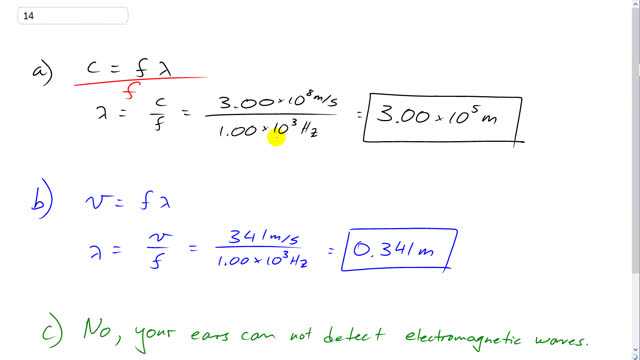 14
a) c = f λ
f
λ = c/f = 3.00 × 10⁸ m/s / 1.00 × 10³ Hz = 3.00 × 10⁵ m
b) v = f λ
λ = v/f = 341 m/s / 1.00 × 10³ Hz = 0.341 m
c) No, your ears can not detect electromagnetic waves.